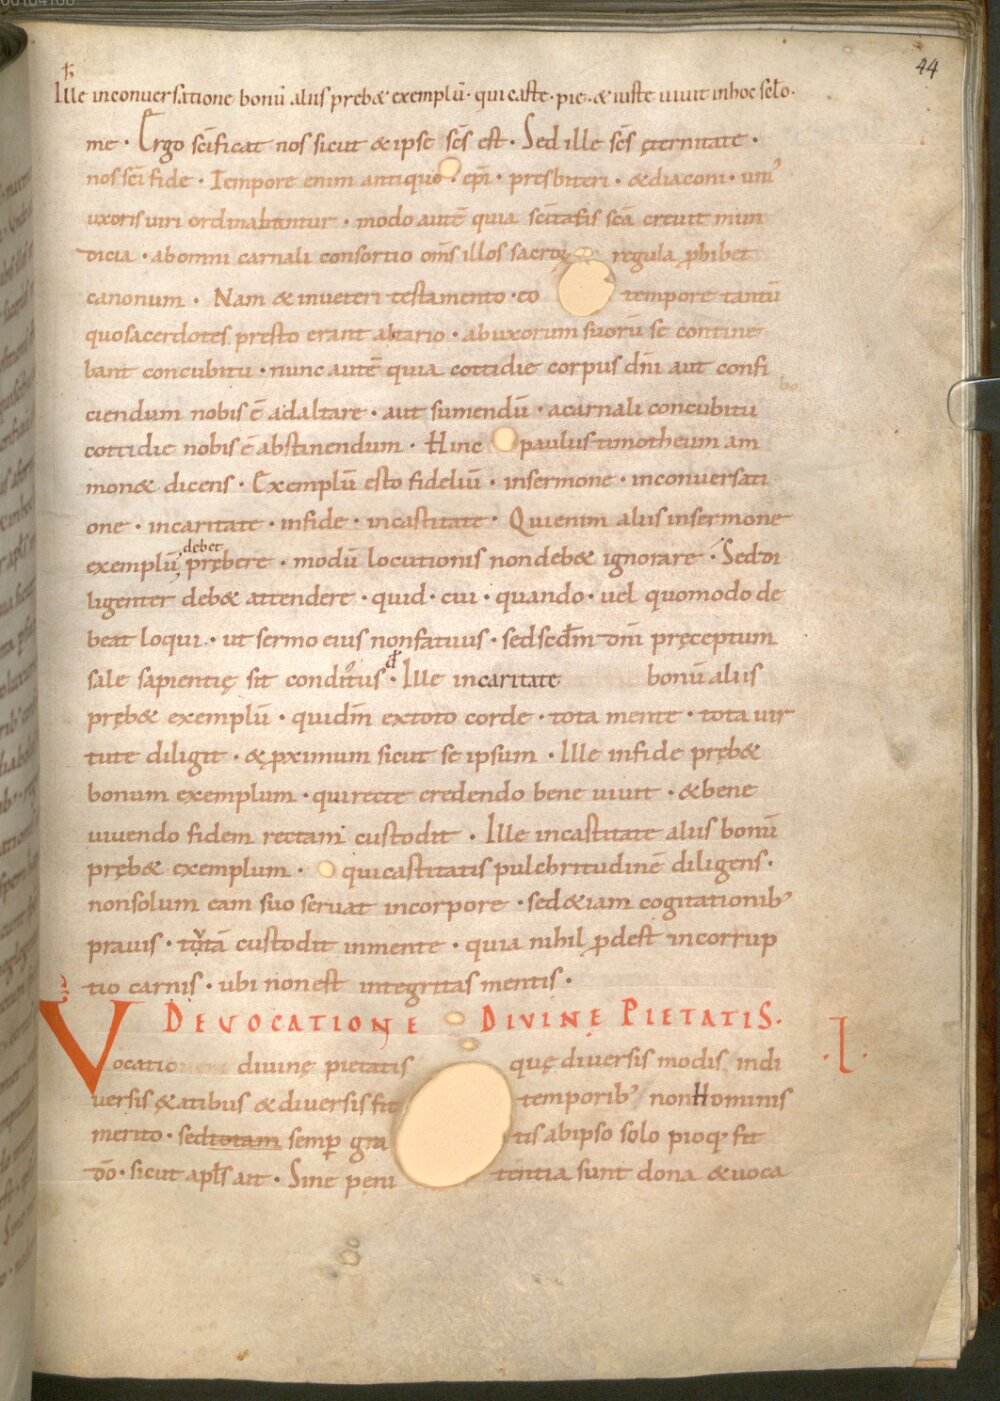 00104168
44
Ille inconuersatione bonū aliis prebæ exemplū· qui caste· pie· & iuste uiuit in hoc sc̄lo·
me· Ergo sc̄ificat nos sicut & ipse sc̄s est· Sed ille sc̄s ęternitate·
nos sc̄i fide· Tempore enim antiquo· ep̄i· presbiteri· & diaconi· uni'
uxoris uiri ordinabantur· modo autē quia sc̄itatis sc̄a creuit mun
dicia· ab omni carnali consortio om̄s illos regula p̱hibet
canonum· Nam & in ueteri testamento· eo tempore tantū
quo sacerdotes presto erant altario· ab uxorum suorū se contine
bant concubitu· nunc autē quia cottidie corpus dn̄i aut confi
ciendum nobis ē ad altare· aut sumendū· a carnali concubitu
cottidie nobis ē abstinendum· Hinc paulus timotheum am
monæ dicens· Exemplū esto fideliū· in sermone· in conuersati
one· in caritate· in fide· in castitate· Qui enim aliis in sermone
debet
exemplū prębere· modū locutionis non debæ ignorare· Sed di
ligenter debæ attendere· quid· cui· quando· uel quomodo de
beat loqui· ut sermo eius non fatuus· sed scd̄m dn̄i pręceptum
sale sapientię sit conditus· Ille in caritate bonū aliis
prębæ exemplū· qui dm̄ ex toto corde· tota mente· tota uir
tute diligit· & p̱ximum sicut se ipsum· Ille in fide prębæ
bonum exemplum· qui recte credendo bene uiuit· & bene
uiuendo fidem rectam custodit· Ille in castitate aliis bonū
prębæ exemplum· qui castitatis pulchritudinē diligens·
non solum eam suo seruat in corpore· sed &iam cogitationib'
prauis· totā custodit in mente· quia nihil p̱dest incorrup
tio carnis· ubi non est integritas mentis·
DE VOCATIONE DIVINE PIETATIS·
Vocatio diuinę pietatis quę diuersis modis indi
uersis ętatibus & diuersis fit temporib' non Hominis
merito· sed totam semp̱ gratis ab ipso solo pioq· fit
dō· sicut apl̄s ait· Sine penitentia sunt dona & uoca